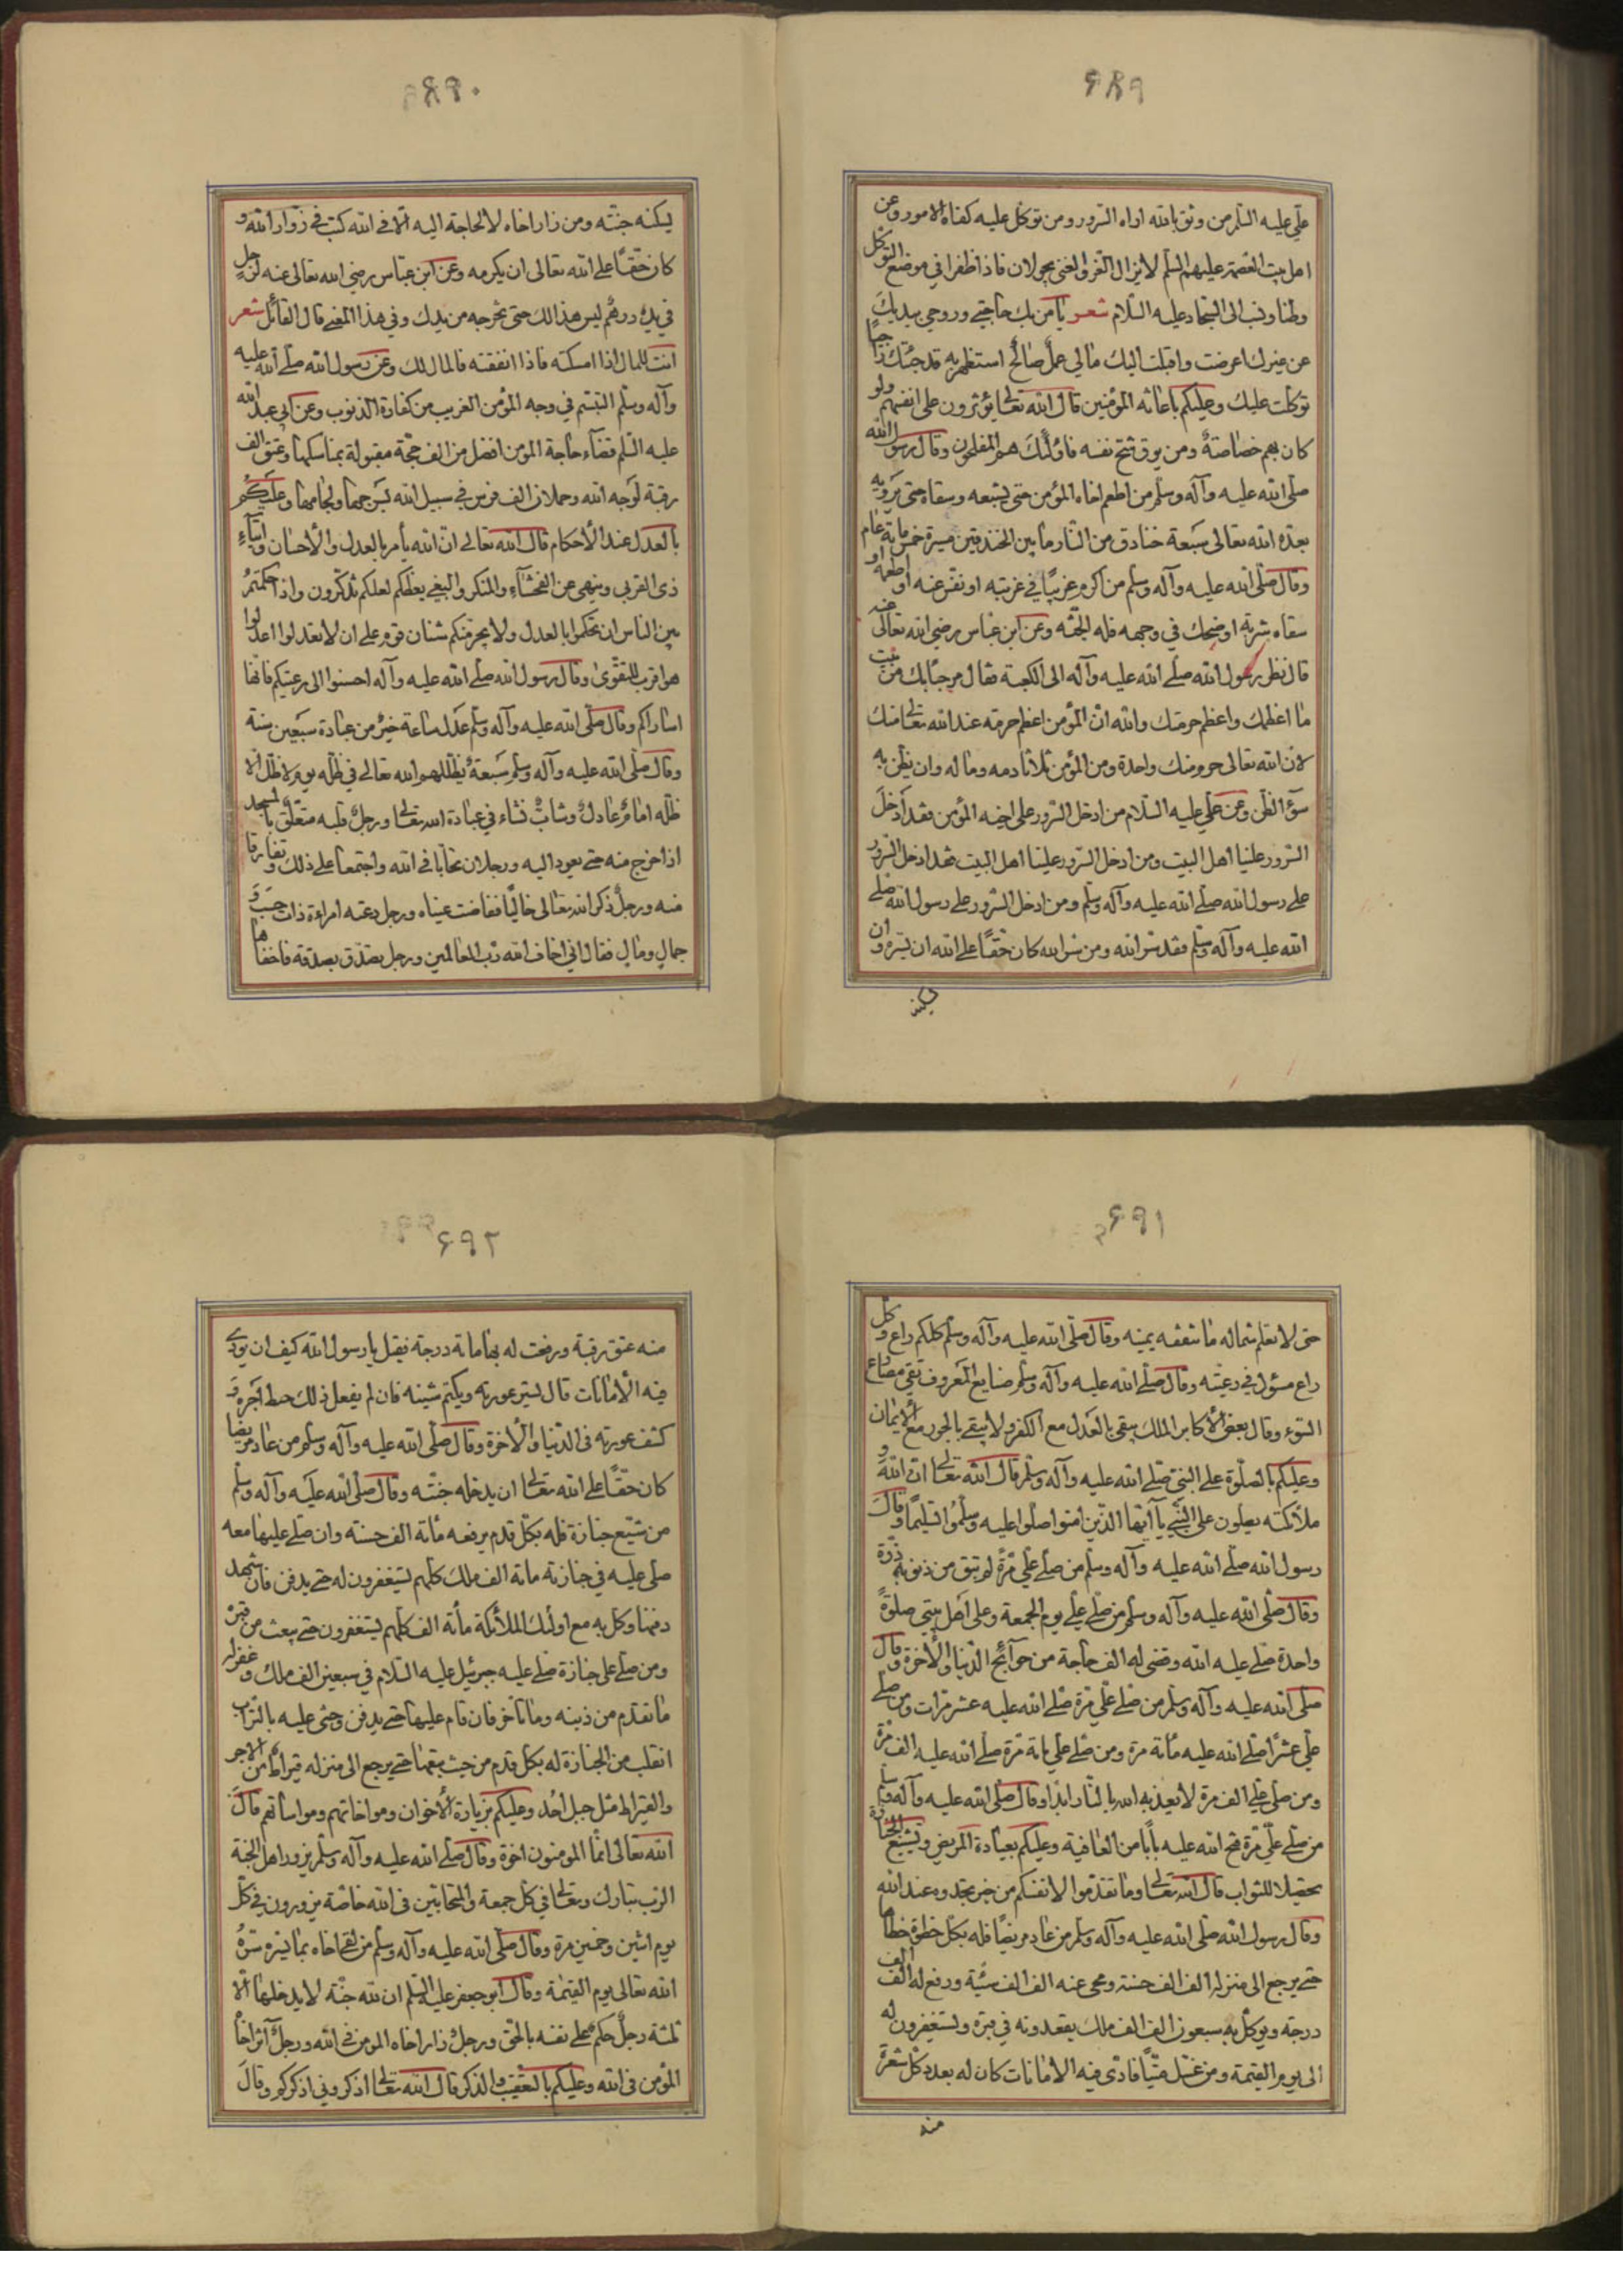 ۶۸۹
علي عليه السلم من وثق بالله اراه السرور ومن توكل عليه كفاه الامور وعن
اهل بيت العصمة عليهم السلم لا يزال العز والغنى يجولان فاذا ظفرا في موضع التوكل
وطنا ونسب الى السجاد عليه السلام شعر يا من بك حاجتي وروحي بيديك
عن غيرك اعرضت واقبلت اليك مالي عمل صالح استظهر به قد جئتك راجيا
توكلت عليك وعليكم باعانة المؤمنين قال الله تعالى يؤثرون على انفسهم ولو
كان بهم خصاصة ومن يوق شح نفسه فاولئك هم المفلحون وقال رسول الله
صلى الله عليه وآله وسلم من اطعم اخاه المؤمن حتى يشبعه وسقاه حتى يرويه
بعده الله تعالى سبعة خنادق من النار ما بين الخندقين مسيرة خمسماية عام
وقال صلى الله عليه وآله وسلم من اكرم غريبا في غربته او نفس عنه او اطعمه او
سقاه شربة او ضحك في وجهه فله الجنة وعن ابن عباس رضي الله تعالى عنه
قال نظر رسول الله صلى الله عليه وآله الى الكعبة فقال مرحبا بك من بيت
ما اعظمك واعظم حرمتك والله ان المؤمن اعظم حرمة عند الله تعالى منك
لان الله تعالى حرم منك واحدة ومن المؤمن ثلاثا دمه وماله وان يظن به
سوء الظن وعن علي عليه السلام من ادخل السرور على اخيه المؤمن فقد ادخل
السرور علينا اهل البيت ومن ادخل السرور علينا اهل البيت فقد ادخل السرور
على رسول الله صلى الله عليه وآله وسلم ومن ادخل السرور على رسول الله صلى
الله عليه وآله وسلم فقد سر الله ومن سر الله كان حقا على الله ان يسره وان
يسكنه
۶۹۰
يسكنه جنته ومن زار اخاه لا لحاجة اليه الا في الله كتب في زوار الله و
كان حقا على الله تعالى ان يكرمه وعن ابن عباس رضي الله تعالى عنه لرجل
في يده درهم ليس هذا لك حتى يخرجه من يدك وفي هذا المعنى قال القائل شعر
انت للمال اذا امسكته فاذا انفقته فالمال لك وعن رسول الله صلى الله عليه
وآله وسلم التبسم في وجه المؤمن الغريب من كفارة الذنوب وعن ابي عبد الله
عليه السلم قضاء حاجة المؤمن افضل من الف حجة مقبولة بمناسكها وعتق الف
رقبة لوجه الله وحملان الف فرس في سبيل الله بسرجها ولجامها وعليكم
بالعدل عند الأحكام قال الله تعالى ان الله يأمر بالعدل والأحسان وايتاء
ذي القربى وينهى عن الفحشاء والمنكر والبغي يعظكم لعلكم تذكرون واذا حكمتم
بين الناس ان تحكموا بالعدل ولا يجرمنكم شنان قوم على ان لا تعدلوا اعدلوا
هو اقرب للتقوى وقال رسول الله صلى الله عليه وآله احسنوا الى رعيتكم فانها
اساراكم وقال صلى الله عليه وآله وسلم عدل ساعة خير من عبادة سبعين سنة
وقال صلى الله عليه وآله وسلم سبعة يظلهم الله تعالى في ظله يوم لا ظل الا
ظله امام عادل وشاب نشاء في عبادة الله تعالى ورجل قلبه متعلق بالمسجد
اذا خرج منه حتى يعود اليه ورجلان تحابا في الله واجتمعا على ذلك وتفارقا
منه ورجل ذكر الله تعالى خاليا ففاضت عيناه ورجل دعته امراءة ذات حسب و
جمال ومال فقال اني اخاف الله رب العالمين ورجل يصدق بصدقة فاخفاها
۶۹۱
حتى لا تعلم شماله ما تنفقه يمينه وقال صلى الله عليه وآله وسلم كلكم راع وكل
راع مسؤل في رعيته وقال صلى الله عليه وآله وسلم صنايع المعروف تقي مصارع
السوء وقال بعض الأكابر الملك يبقى بالعدل مع الكفر ولا يبقى بالجور مع الأيمان
وعليكم بالصلوة على النبي صلى الله عليه وآله وسلم قال الله تعالى ان الله و
ملائكته يصلون على النبي يا ايها الذين امنوا صلوا عليه وسلموا تسليما وقال
رسول الله صلى الله عليه وآله وسلم من صلى علي مرة لم تبق من ذنوبه ذرة
وقال صلى الله عليه وآله وسلم من صلى علي يوم الجمعة وعلى اهل بيتي صلوة
واحدة صلى عليه الله وقضى له الف حاجة من حوائج الدنيا والأخرة وقال
صلى الله عليه وآله وسلم من صلى علي مرة صلى الله عليه عشر مرات ومن صلى
علي عشرا صلى الله عليه مائة مرة ومن صلى علي ماية مرة صلى الله عليه الف مرة
ومن صلى علي الف مرة لا يعذبه الله بالنار ابدا وقال صلى الله عليه وآله وسلم
من صلى علي مرة فتح الله عليه بابا من العافية وعليكم بعيادة المريض وتشييع الجنازة
تحصيلا للثواب قال الله تعالى وما تقدموا لانفسكم من خير تجدوه عند الله
وقال رسول الله صلى الله عليه وآله وسلم من عاد مريضا فله بكل خطوة خطاها
حتى يرجع الى منزله الف الف حسنة ومحى عنه الف الف سيئة ورفع له الف الف
درجة ويوكل به سبعون الف الف ملك يقعدونه في قبره ويستغفرون له
الى يوم القيمة ومن غسل ميتا فادى فيه الامانات كان له بعدد كل شعرة
منه
۶۹۲
منه عتق رقبة ورفعت له بها ماية درجة فقيل يا رسول الله كيف ان يؤدي
فيه الأمانات قال يستر عورته ويكتم شينه فان لم يفعل ذلك حبط اجره و
كشف عورته في الدنيا والأخرة وقال صلى الله عليه وآله وسلم من عاد مريضا
كان حقا على الله تعالى ان يدخله جنته وقال صلى الله عليه وآله وسلم
من شيع جنازة فله بكل قدم يرفعه مائة الف حسنة وان صلى عليها معه
صلى عليه في جنازته ماية الف ملك كلهم يستغفرون له حتى يدفن فان شهد
دفنها وكل به مع اولئك الملائكة مائة الف كلهم يستغفرون حتى يبعث من قبره
ومن صلى على جنازة صلى عليه جبرئيل عليه السلام في سبعين الف ملك وغفر له
ما تقدم من ذنبه وما تأخر فان قام عليها حتى يدفن وحثى عليه بالتراب
انقلب من الجنازة له بكل قدم من حيث يتبعها حتى يرجع الى منزله قيراط من الاجر
والقيراط مثل جبل احد وعليكم بزيارة الأخوان ومواخاتهم ومواساتهم قال
الله تعالى انما المومنون اخوة وقال صلى الله عليه وآله وسلم يزور اهل الجنة
الرب تبارك وتعالى في كل جمعة والمتحابين في الله خاصة يزورون في كل
يوم اثنين وخمسين مرة وقال صلى الله عليه وآله وسلم من لقى اخاه بما يسره سره
الله تعالى يوم القيمة وقال ابو جعفر عليه السلم ان لله جنة لا يدخلها الا
ثلثة رجل حكم على نفسه بالحق ورجل زار اخاه المومن في الله ورجل آثر اخاه
المؤمن في الله وعليكم بالتعقيب والذكر قال الله تعالى اذكروني اذكركم وقال